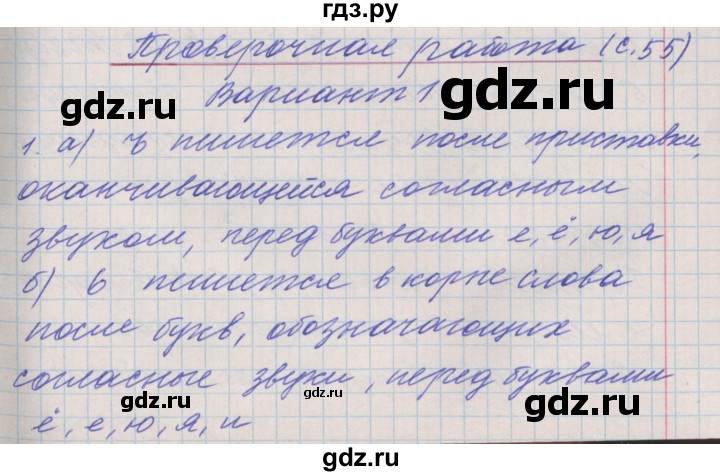 гдз.ру
Проверочная работа (с.55)
gdz.ru
Вариант 1
gdz.ru
1. а) ъ пишется после приставки,
gdz.ru
оканчивающейся согласным
звуком, перед буквами е, ё, ю, я
gdz.ru
б) ь пишется в корне слова
после букв, обозначающих
gdz.ru
согласные звуки, перед буквами
gdz.ru
gdz.ru
ё, е, ю, я, и
gdz.ru